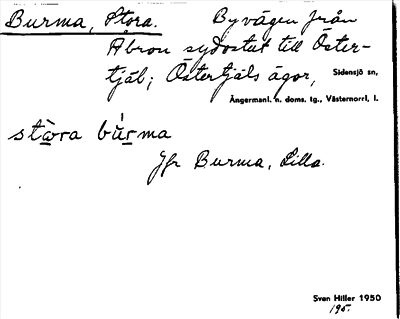 Burma, Stora. Byvägen från
Åbron sydostut till Öster-
tjäl; Östertjäls ägor, Sidensjö sn,
Ångermanl. n. doms. tg., Västernorrl, l.
stàra bu̇rma
Jfr Burma, Lilla.
Sven Hiller 1950
195.